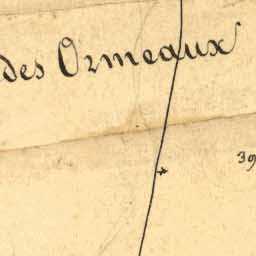 des Ormeaux
39